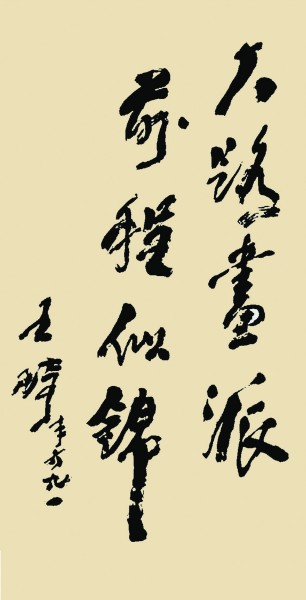 大路畫派
前程似錦
王琦年方九一